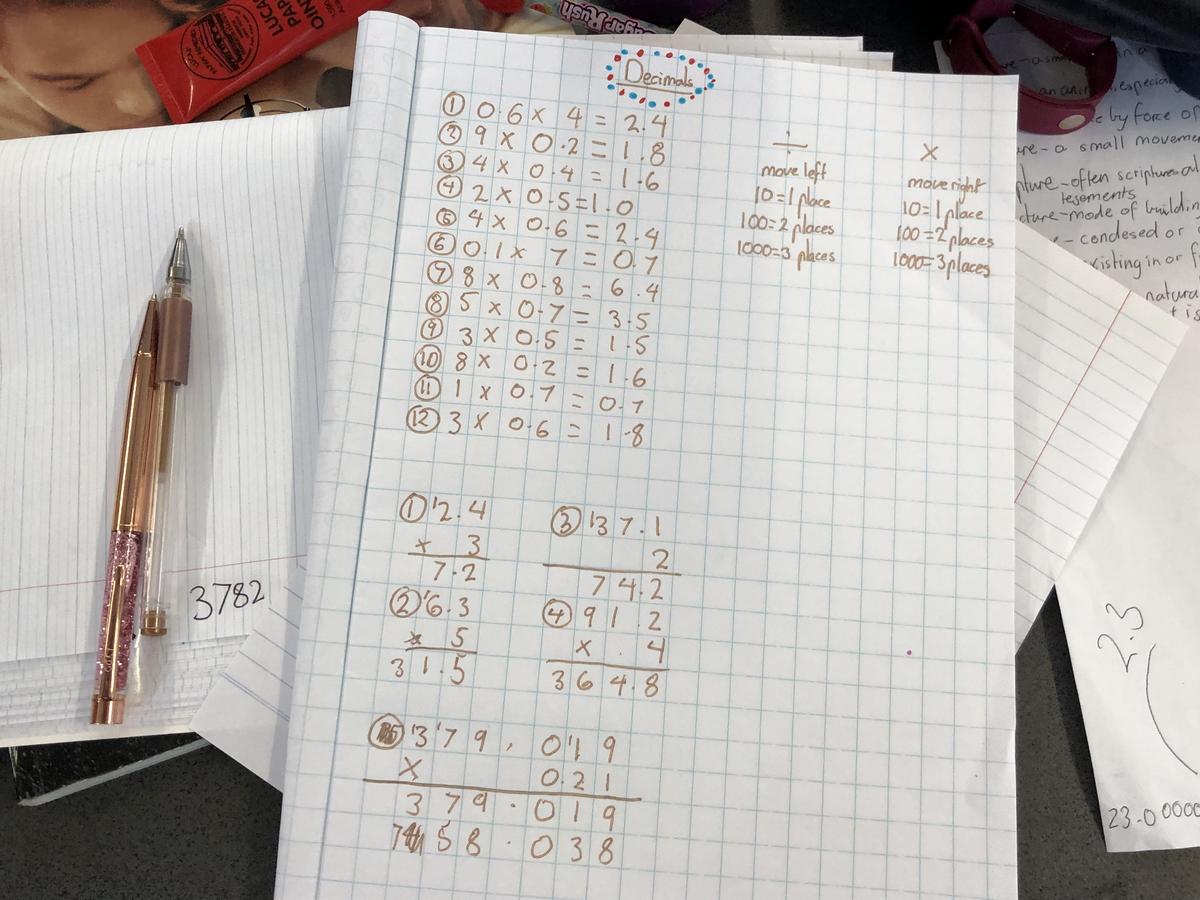 Decimals
① 0.6 x 4 = 2.4
② 9 x 0.2 = 1.8
③ 4 x 0.4 = 1.6
④ 2 x 0.5 = 1.0
⑤ 4 x 0.6 = 2.4
⑥ 0.1 x 7 = 0.7
⑦ 8 x 0.8 = 6.4
⑧ 5 x 0.7 = 3.5
⑨ 3 x 0.5 = 1.5
⑩ 8 x 0.2 = 1.6
⑪ 1 x 0.7 = 0.7
⑫ 3 x 0.6 = 1.8
÷
move left
10=1 place
100=2 places
1000=3 places
x
move right
10=1 place
100=2 places
1000=3 places
① '2.4
x 3
7.2
② '6.3
x 5
31.5
③ '37.1
2
74.2
④ 91.2
x . 4
364.8
⑤ '3'79.0'19
x 0.21
379.019
758.038
3782
2.3
23.00000
LUCAS
PAP
OINT
Sugar Rush
especial
by force of
a small movem
often scripture
mode of buildin
condesed or
existing in or f
natura
t is